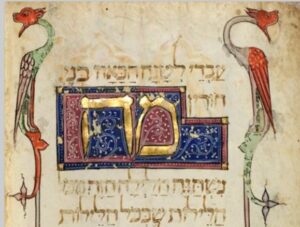 עבדי לשנה הבאה בני
חורין
מה
נשתנה הלילה הזה מכל
הלילות שבכל הלילות